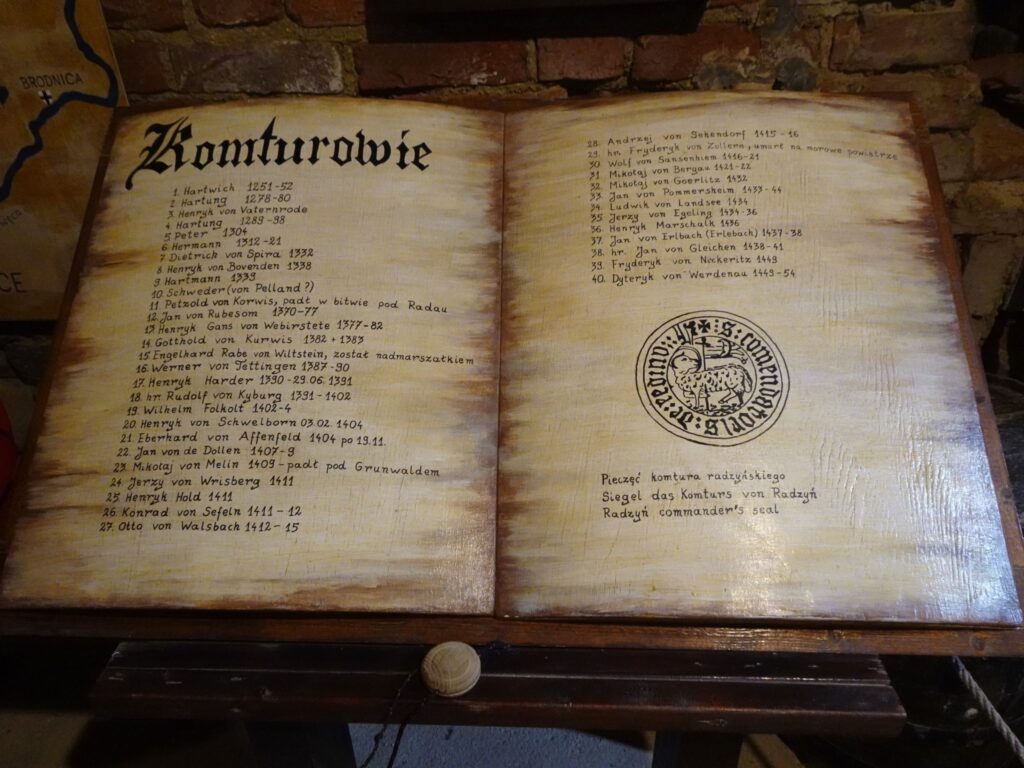 BRODNICA
CE
Komturowie
1. Hartwich 1251-52
2. Hartung 1278-80
3. Henryk von Vaternrode
4. Hartung 1289-98
5. Peter 1304
6. Hermann 1312-21
7. Dietrich von Spira 1332
8. Henryk von Bovenden 1338
9. Hartmann 1339
10. Schweder (von Pelland ?)
11. Petzold von Korwis, padł w bitwie pod Rudau
12. Jan von Rubesom 1370-77
13. Henryk Gans von Webirstete 1377-82
14. Gotthold von Kurwis 1382 + 1383
15. Engelhard Rabe von Wiltstein, został nadmarszałkiem
16. Werner von Tettingen 1387-90
17. Henryk Harder 1390-29.06.1391
18. hr. Rudolf von Kyburg 1391-1402
19. Wilhelm Folkolt 1402-4
20. Henryk von Schwelborn 03.02.1404
21. Eberhard von Affenfeld 1404 po 19.11.
22. Jan von de Dollen 1407-9
23. Mikołaj von Melin 1409 - padł pod Grunwaldem
24. Jerzy von Wrisberg 1411
25. Henryk Hold 1411
26. Konrad von Sefeln 1411-12
27. Otto von Walsbach 1412-15
28. Andrzej von Sekendorf 1415-16
29. hr. Fryderyk von Zollern, umarł na morowe powietrze
30. Wolf von Sansenhiem 1416-21
31. Mikołaj von Bergau 1421-22
32. Mikołaj von Goerlitz 1432
33. Jan von Pommersheim 1433-44
34. Ludwik von Landsee 1434
35. Jerzy von Egeling 1434-36
36. Henryk Marschalk 1436
37. Jan von Erlbach (Erlebach) 1437-38
38. hr. Jan von Gleichen 1438-41
39. Fryderyk von Nickeritz 1449
40. Dyteryk von Werdenau 1449-54
S: COMENDATORIS: DE: REDINV
Pieczęć komtura radzyńskiego
Siegel das Komturs von Radzyń
Radzyń commander's seal